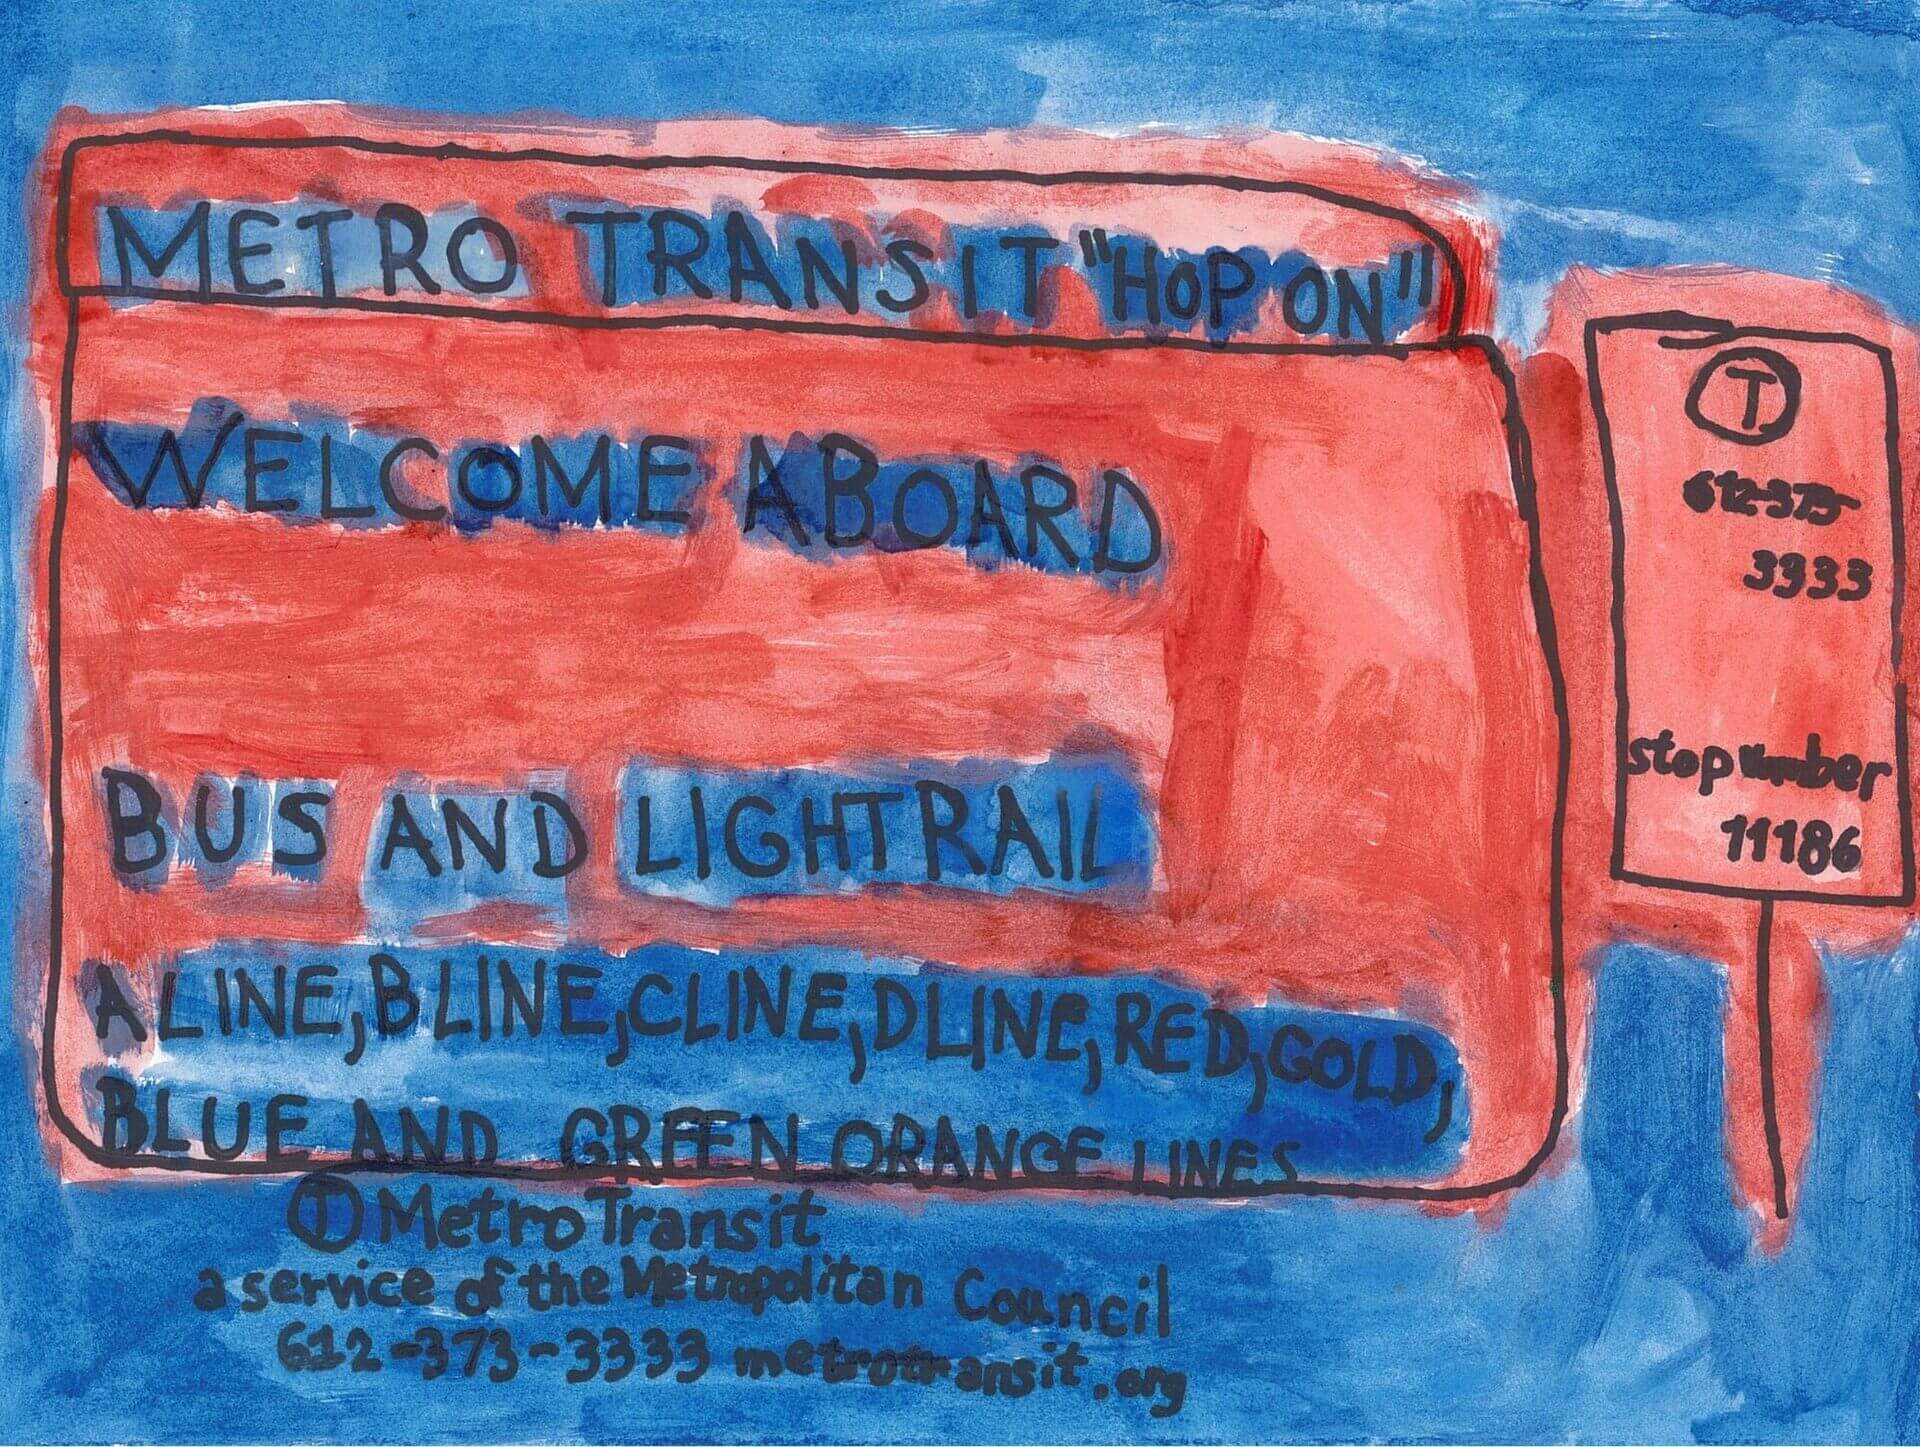 METRO TRANSIT "HOP ON"
WELCOME ABOARD
BUS AND LIGHTRAIL
A LINE, B LINE, C LINE, D LINE, RED, GOLD,
BLUE AND GREEN ORANGE LINES
T Metro Transit
a service of the Metropolitan Council
612-373-3333 metrotransit.org
T
612-373-
3333
stop number
11186